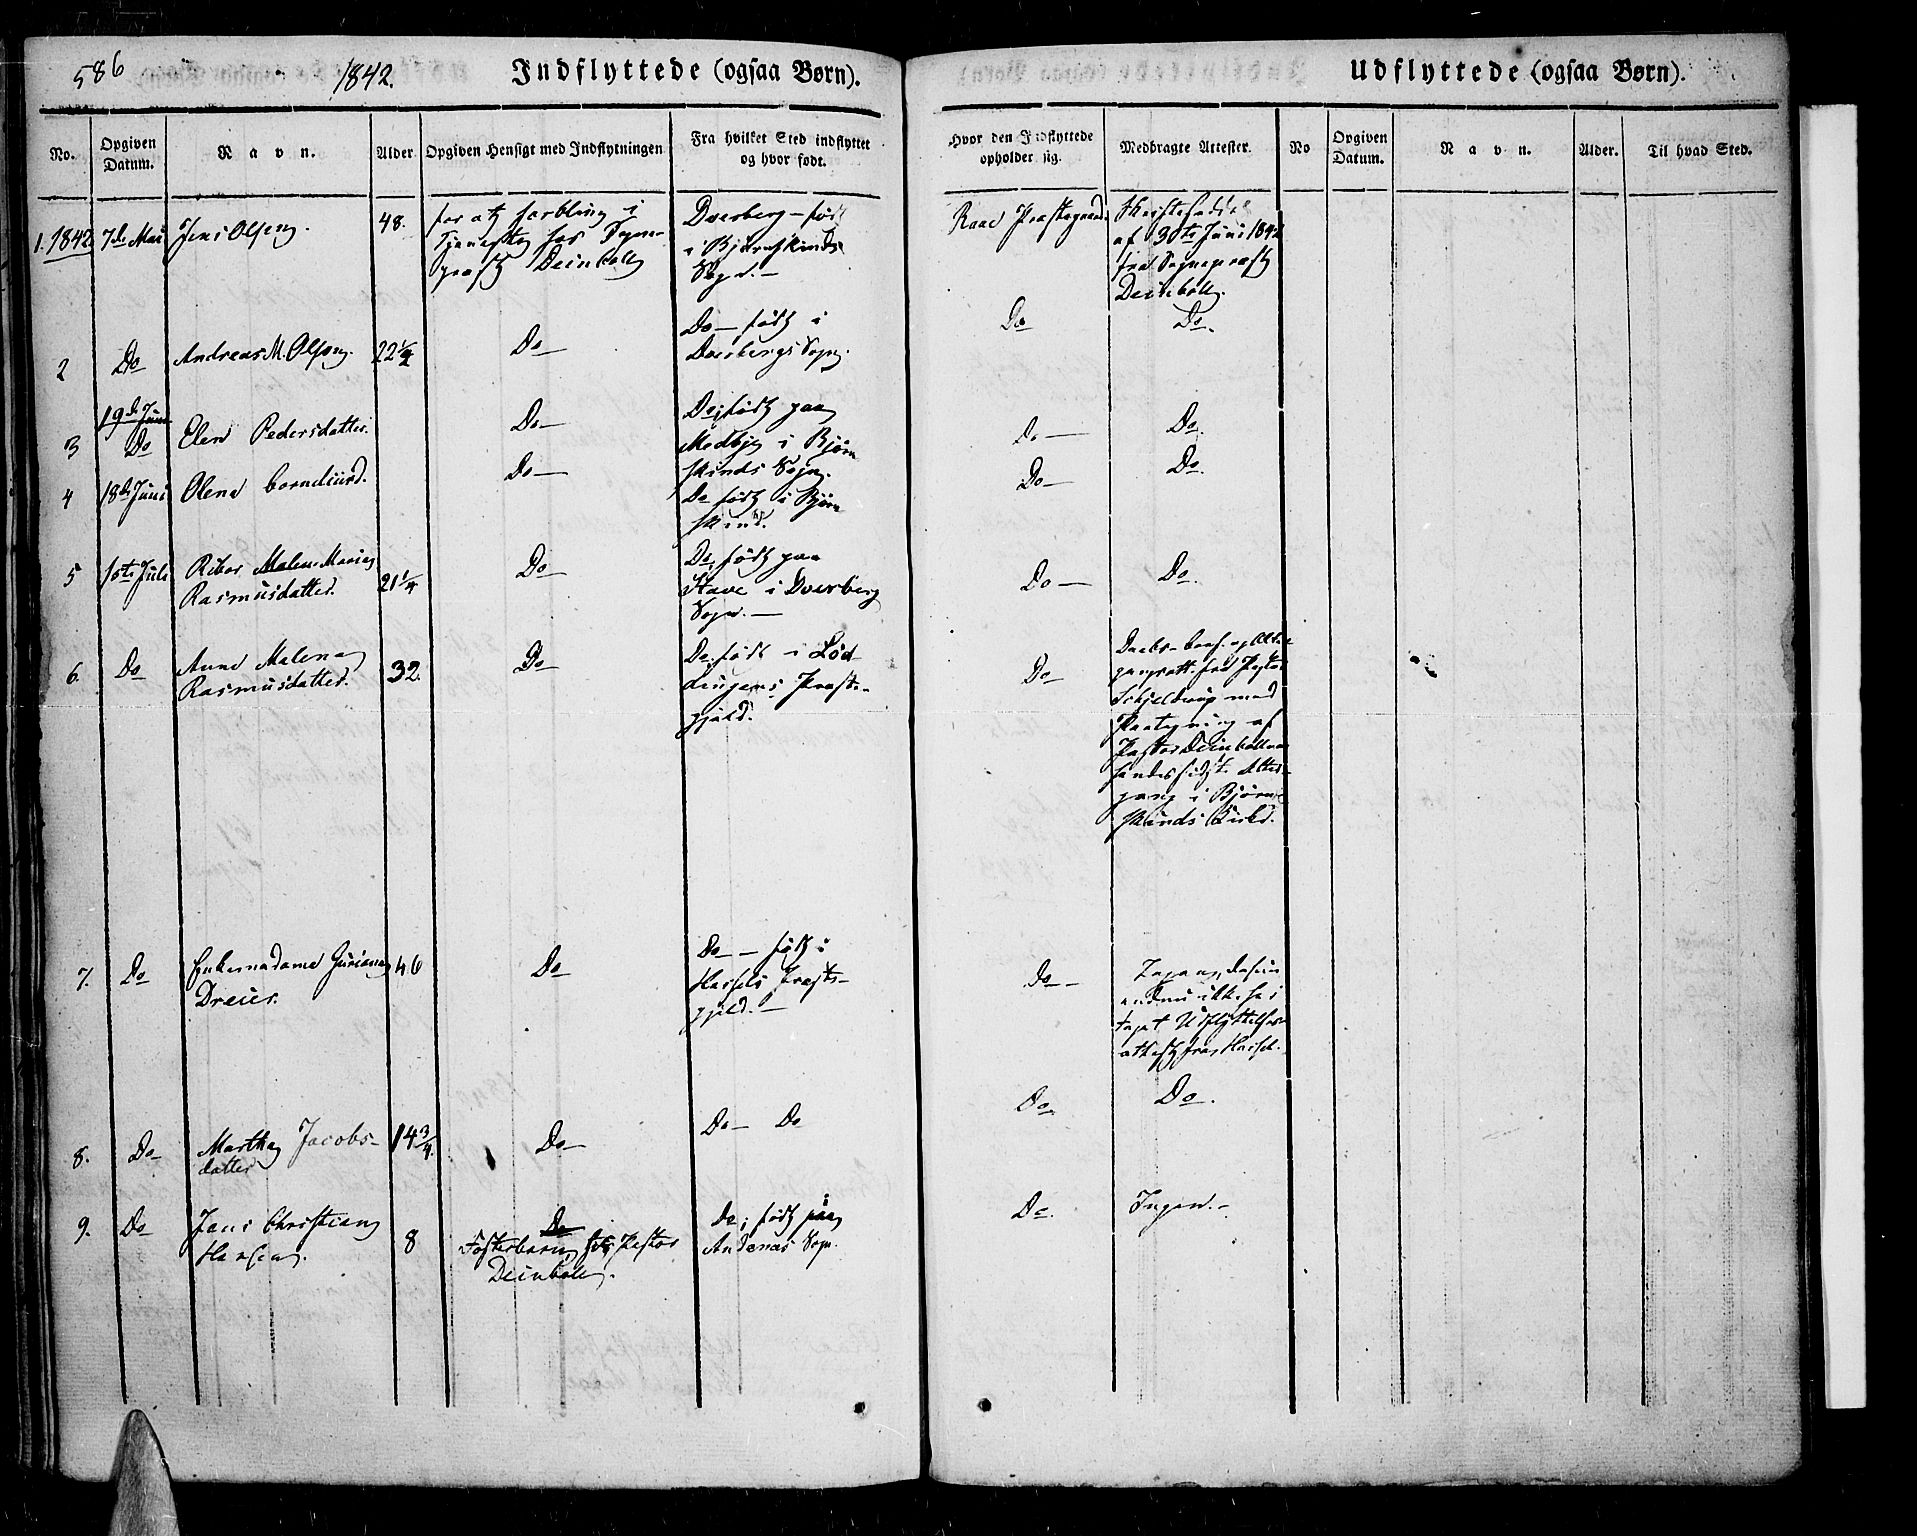 586
1842.
Indflyttede (ogsaa Børn).
Udflyttede (ogsaa Børn).
No.
Opgiven Datum.
Navn.
Alder
Opgiven Hensigt med Indflytningen
Fra hvilket Sted indflyttet
og hvor født.
Hvor den Indflyttede
opholder sig.
Medbragte Attester.
No
Opgiven
Datum.
Navn.
Alder.
Til hvad Sted.
1. 1842 7de Mai Jens Olsen. 48.
for at forblive i
Tjeneste hos Sogne-
præst Deinboll
Dverberg - født
i Bjørnskinds
Sogn. -
af 30te Juni 1842
fra Sognepræst
Deinboll.
2 Do Andreas M. Olsen. 22 1/4 Do
Do - født i
Dverbergs Sogn.
Do Do.
19de Juni
3 Do Elen Pedersdatter. Do -
Do, født paa
Medbye i Bjørn
skinds Sogn.
Do - Do.
4 18de Juni Olena Do -
Do født i Bjørn
skind.
Do - Do.
5 1ste Juli Malene Maria
Rasmusdatter. 21 1/4 Do
Do, født paa
Stave i Dverberg
Sogn. -
Do - Do.
6. Do Anne Malena
Rasmusdatter. 32. Do
Do, født i Lød-
ingens Præste-
gjæld.
Do
fra Pastor
Schjeldrup med
Paategning af
Pastor Deinboll
hendes sidste Alter-
gang i Bjørn
skinds Kirke.
7. Do Enkemadame Juriana
Dreier. 46 Do
Do - født i
Hassels Præste-
gjeld. -
Do -
Ingen, da hun
endnu ikke ha
taget Udflyttelses-
attest fra Hassel.
8. Do Martha Jacobs-
datter 14 3/4. Do -
Do - Do
Do Do.
9. Do Jens Christian
Hansen. 8
Do
Fosterbarn hos Pastor
Deinboll.
Do, født paa
Andenæs Sogn.
Do. Ingen. -